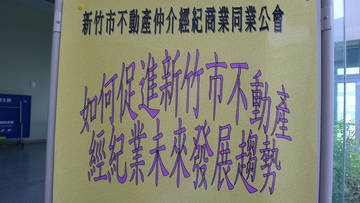 新竹市不動產仲介經紀商業同業公會
如何促進新竹市不動產
經紀業未來發展趨勢